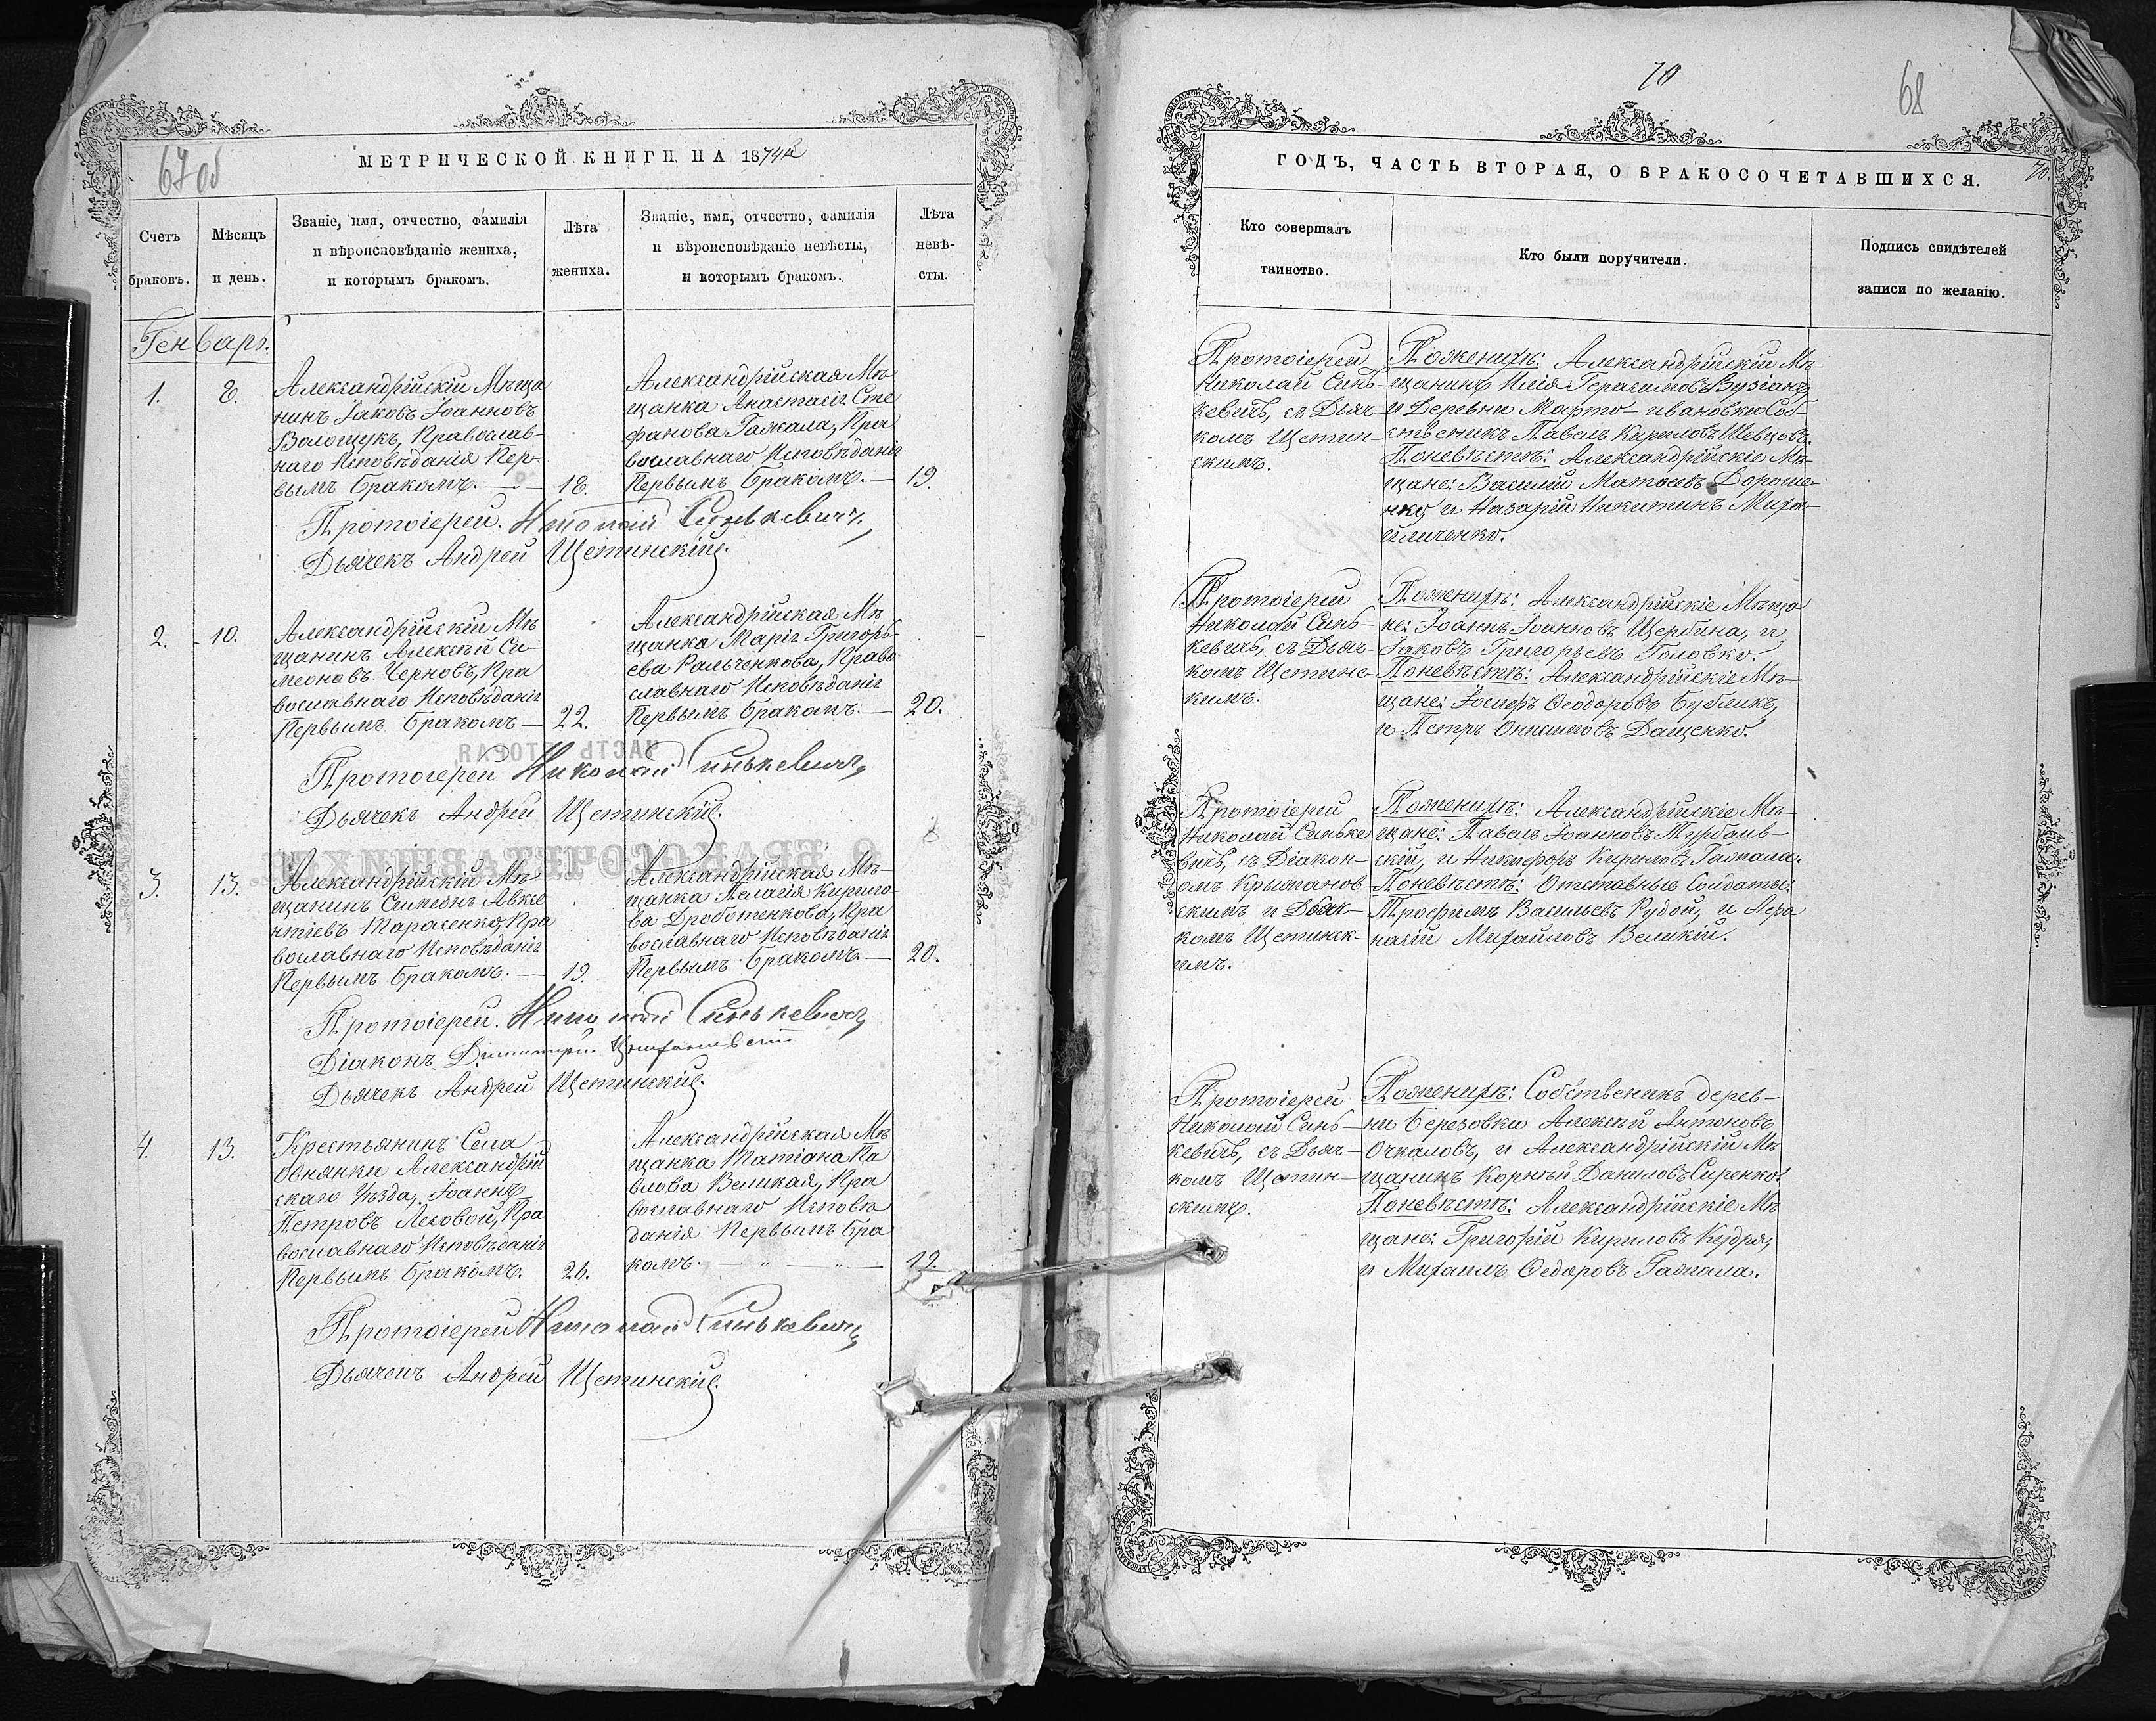 67 об
МЕТРИЧЕСКОЙ КНИГИ НА 1874й
Счетъ браковъ.
Мѣсяцъ и день.
Званіе, имя, отчество, фамилія
и вѣроисповѣданіе жениха,
и которымъ бракомъ.
Лѣта
жениха.
Званіе, имя, отчество, фамилія
и вѣроисповѣданіе невѣсты,
и которымъ бракомъ.
Лѣта
невѣ-
сты.
Генварь.
1.
8.
Александрійскій Мѣща
нинъ Іаковъ Іоанновъ
Волощукъ, Православ-
наго Исповѣданія Пер-
вымъ бракомъ.
18.
Александрійская Мѣ
щанка Анастасія Сте
фанова Гажала, Пра
вославнаго Исповѣданія
Первымъ бракомъ. —
19.
Протоіерей. Николай Синькевичъ,
Дьячекъ Андрей Щетинскій.
2.
10.
Александрійскій Мѣ
щанинъ Алексѣй Си-
меоновъ Черновъ, Пра
вославнаго Исповѣданія
Первымъ бракомъ —
22.
Александрійская Мѣ
щанка Марія Григорь-
ева Ральченкова, Право
славнаго Исповѣданія
Первымъ бракомъ. —
20.
Протоіерей Николай Синькевичъ,
Дьячекъ Андрей Щетинскій.
3.
13.
Александрійскій Мѣ
щанинъ Симеонъ Авксе
нтіевъ Тарасенко, Пра
вославнаго Исповѣданія
Первымъ бракомъ. —
19.
Александрійская Мѣ-
щанка Пелагія Кирило-
ва Дроботенкова, Пра
вославнаго Исповѣданія
Первымъ бракомъ. —
20.
Протоіерей. Николай Синькевичъ,
Діаконъ Димитрій
Дьячекъ Андрей Щетинскій.
4.
13.
Крестьянинъ Села
Овнянки Александрій
скаго Уѣзда, Іоаннъ
Петровъ Лесовой, Пра
вославнаго Исповѣданія
Первымъ бракомъ.
26.
Александрійская Мѣ
щанка Татіана Па
влова Великая, Пра
вославнаго Исповѣ
данія Первымъ бра
комъ.
19.
Протоіерей Николай Синькевичъ,
Дьячекъ Андрей Щетинскій.
70
68
70.
ГОДЪ, ЧАСТЬ ВТОРАЯ, О БРАКОСОЧЕТАВШИХСЯ.
Кто совершалъ
таинство.
Кто были поручители.
Подпись свидѣтелей
записи по желанію.
Протоіерей
Николай Синь-
кевичъ, съ Дьяч-
комъ Щетин-
скимъ.
Поженихѣ: Александрійскій Мѣ-
щанинъ Илія Герасимовъ Вузганъ,
и Деревни Марто-ивановки Соб-
ственикъ Павелъ Кириловъ Шевцовъ.
Поневѣстѣ: Александрійскіе Мѣ-
щане: Василій Матѳеевъ Дороше-
нко, и Назарій Никитинъ Миха-
йличенко.
Протоіерей
Николай Синь-
кевичъ, съ Дьяч-
комъ Щетинс-
кимъ.
Поженихѣ: Александрійскіе Мѣща
не: Іоаннъ Іоанновъ Щербина, и
Іаковъ Григорьевъ Головко.
Поневѣстѣ: Александрійскіе Мѣ-
щане: Іосифъ Ѳеодоровъ Бубликъ,
и Петръ Онисимовъ Дащенко.
Протоіерей
Николай Синьке
вичъ, съ Діакон-
омъ Крыжанов-
скимъ и Дьяч-
комъ Щетинск-
имъ.
Поженихѣ: Александрійскіе Мѣ-
щане: Павелъ Іоанновъ Турбаив-
скій, и Никифоръ Кириловъ Гажала.
Поневѣстѣ: Отставные Солдаты:
Трофимъ Васильевъ Рудой, и Аѳа
насій Михайловъ Великій.
Протоіерей
Николай Синь-
кевичъ, съ Дьяч-
комъ Щетин-
скимъ.
Поженихѣ: Собственикъ дерев-
ни Березовки Алексѣй Антоновъ
Очкаловъ, и Александрійскій Мѣ
щанинъ Корнѣй Даниловъ Сиренко.
Поневѣстѣ: Александрійскіе Мѣ
щане: Григорій Кириловъ Кудря,
и Михаилъ Ѳедоровъ Гажала.